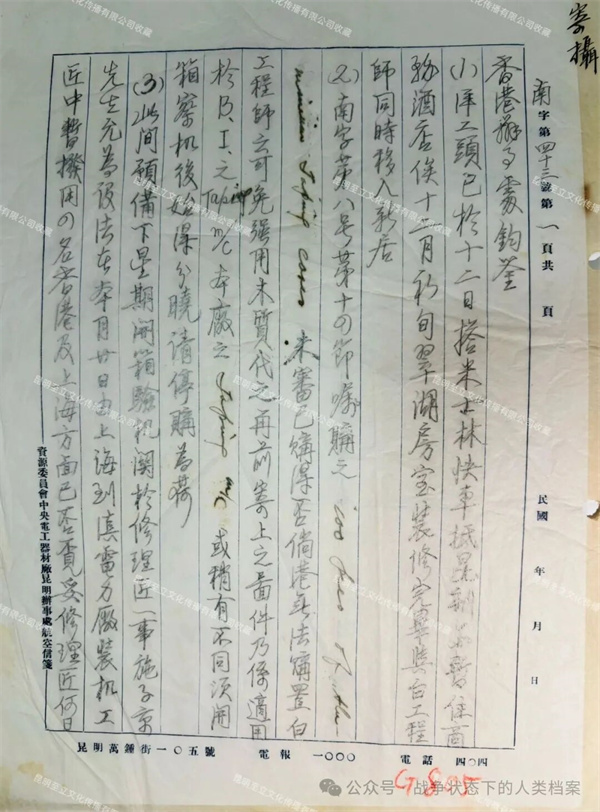 南字第四十三號第 1 頁共 頁
民國 年 月 日
香港辦事處鈞鉴
(1) 洋工頭已於十二日搭米士林快車抵昆 暫住商
務酒店俟十二月初旬翠湖房室裝修完畢與白工程
師同時移入新居
(2) 南字第八号第十四節嘱購之
未審已購得否倘港無法購置白
工程師云可免强用木質代之再前寄上之图件乃係適用
於B.I.之Taping m/c 本廠之 m/c 或稍有不同須開
箱察机後始得分曉請停購為荷
(3) 此間預備下星期開箱驗机関於修理匠一事施子京
先生允為設法在本月廿日由上海到滇電方廠裝机工
匠中暫撥用四名香港及上海方面已否覓妥修理匠何日
資源委員會中央電工器材廠昆明辦事處航空信箋
昆明萬鍾街一〇五號 電報 一〇〇〇 電話 四〇四
G 805
公众号 · 战争状态下的人类档案
昆明至立文化传播有限公司收藏